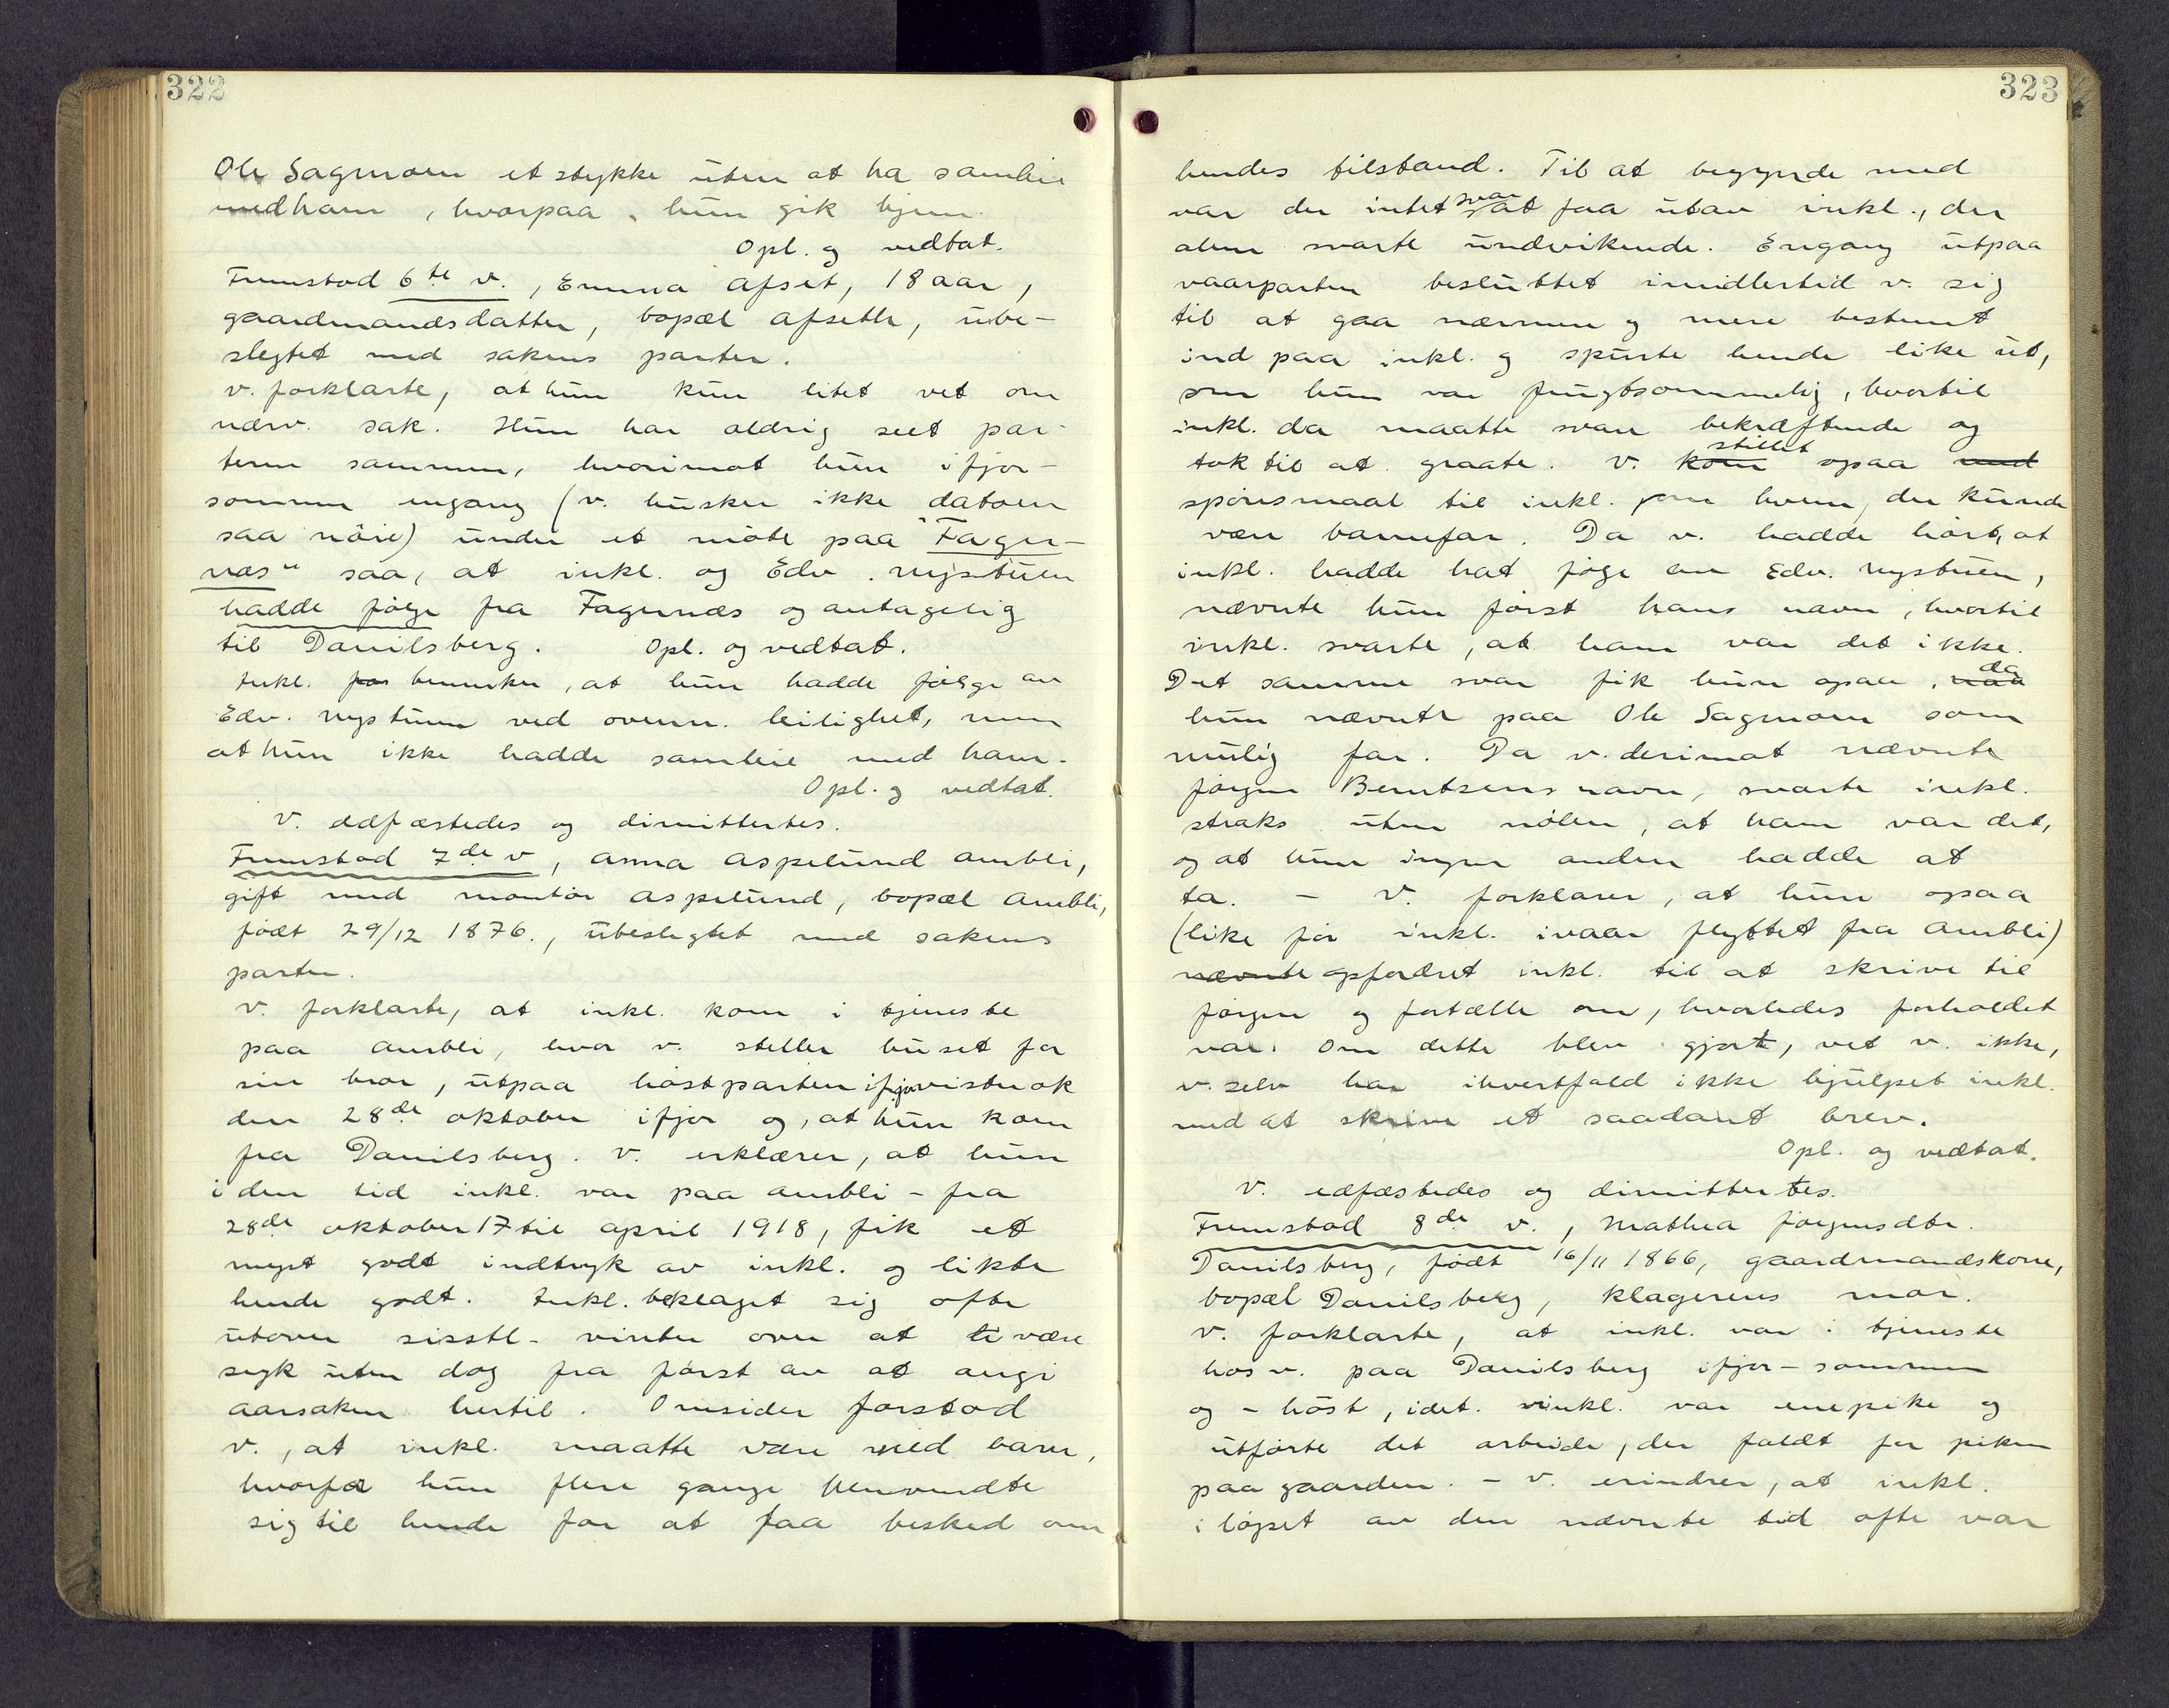 322
Ole Sagmoen et stykke uten at ha samleie
med ham, hvorpaa hun gik hjem.
Opl. og vedtat.
Fremstod 6te v., Emma Afset, 18 aar,
gaardmandsdatter, bopæl Afseth, ube-
slegtet med sakens parter.
v. forklarte, at hun kun litet vet om
nærv. sak. Hun har aldrig seet par-
terne sammen, hvorimot hun ifjor-
sommer engang (v. husker ikke datoen
saa nöie) under et möte paa "Fager-
næs" saa, at inkl. og Edv. Nystuen
hadde fölge fra Fagernæs og antagelig
til Danilsberg. Opl. og vedtat.
Inkl. for bemerker, at hun hadde fölge av
Edv. Nystuen ved ovenn. leilighet, men
at hun ikke hadde samleie med ham.
Opl. og vedtat.
V. edfæstedes og dimittertes.
Fremstod 7de v, Anna Aspelund Ambli,
gift med montör Aspelund, bopæl Ambli,
födt 29/12 1876., ubeslegtet med sakens
parter.
v. forklarte, at inkl. kom i tjeneste
paa Ambli, hvor v. steller huset for
sin bror, utpaa höstparten ifjor vistnok
den 28de oktober ifjor og, at hun kom
fra Danilsberg. V. erklærer, at hun
i den tid inkl. var paa Ambli - fra
28de oktober 17 til april 1918, fik et
meget godt indtryk av inkl. og likte
hende godt. Inkl. beklaget sig ofte
utover sisstl. vinter over at være
syk uten dog fra först av at angi
aarsaken hertil. Omsider forstod
v., at inkl. maatte være med barn,
hvorfor hun flere gange henvendte
sig til hende for at faa besked om
323
hendes tilstand. Til at begynde med
var der intet svar at faa utav inkl., der
alene svarte undvikende. Engang utpaa
vaarparten besluttet imidlertid v. sig
til at gaa nærmere og mere bestemt
ind paa inkl. og spurte hende like ut,
om hun var frugtsommelig, hvortil
inkl. da maatte svare bekræftende og
tok til at graate. V. kom stillet ogsaa med
spörsmaal til inkl. om hvem, der kunde
være barnefar. Da v. hadde hört, at
inkl. hadde hat fölge av Edv. Nystuen,
nævnte hun först hans navn, hvortil
inkl. svarte, at ham var det ikke.
Det samme svar fik hun ogsaa, naa da
hun nævnte paa Ole Sagmoen som
mulig far. Da v. derimot nævnte
Jörgen Berntsens navn, svarte inkl.
straks uten nölen, at ham var det,
og at hun ingen anden hadde at
ta. - V. forklarer, at hun ogsaa
(like för inkl. ivaar flyttet fra Ambli)
nævnte opfordret inkl. til at skrive til
Jörgen og fortælle om, hvorledes forholdet
var. Om dette blev gjort, vet v. ikke,
v. selv har ihvertfald ikke hjulpet inkl.
med at skrive et saadant brev.
Opl. og vedtat.
V. edfæstedes og dimittertes.
Fremstod 8de v., Mathea Jörgensdtr.
Danilsberg, födt 16/11 1866, gaardmandskone,
bopæl Danilsberg, klagerens mor.
v. forklarte, at inkl. var i tjeneste
hos v. paa Danilsberg ifjor-sommer
og - höst, idet inkl. var enepike og
utförte det arbeide, der faldt for piken
paa gaarden. - V. erindrer, at inkl.
i löpet av den nævnte tid ofte var